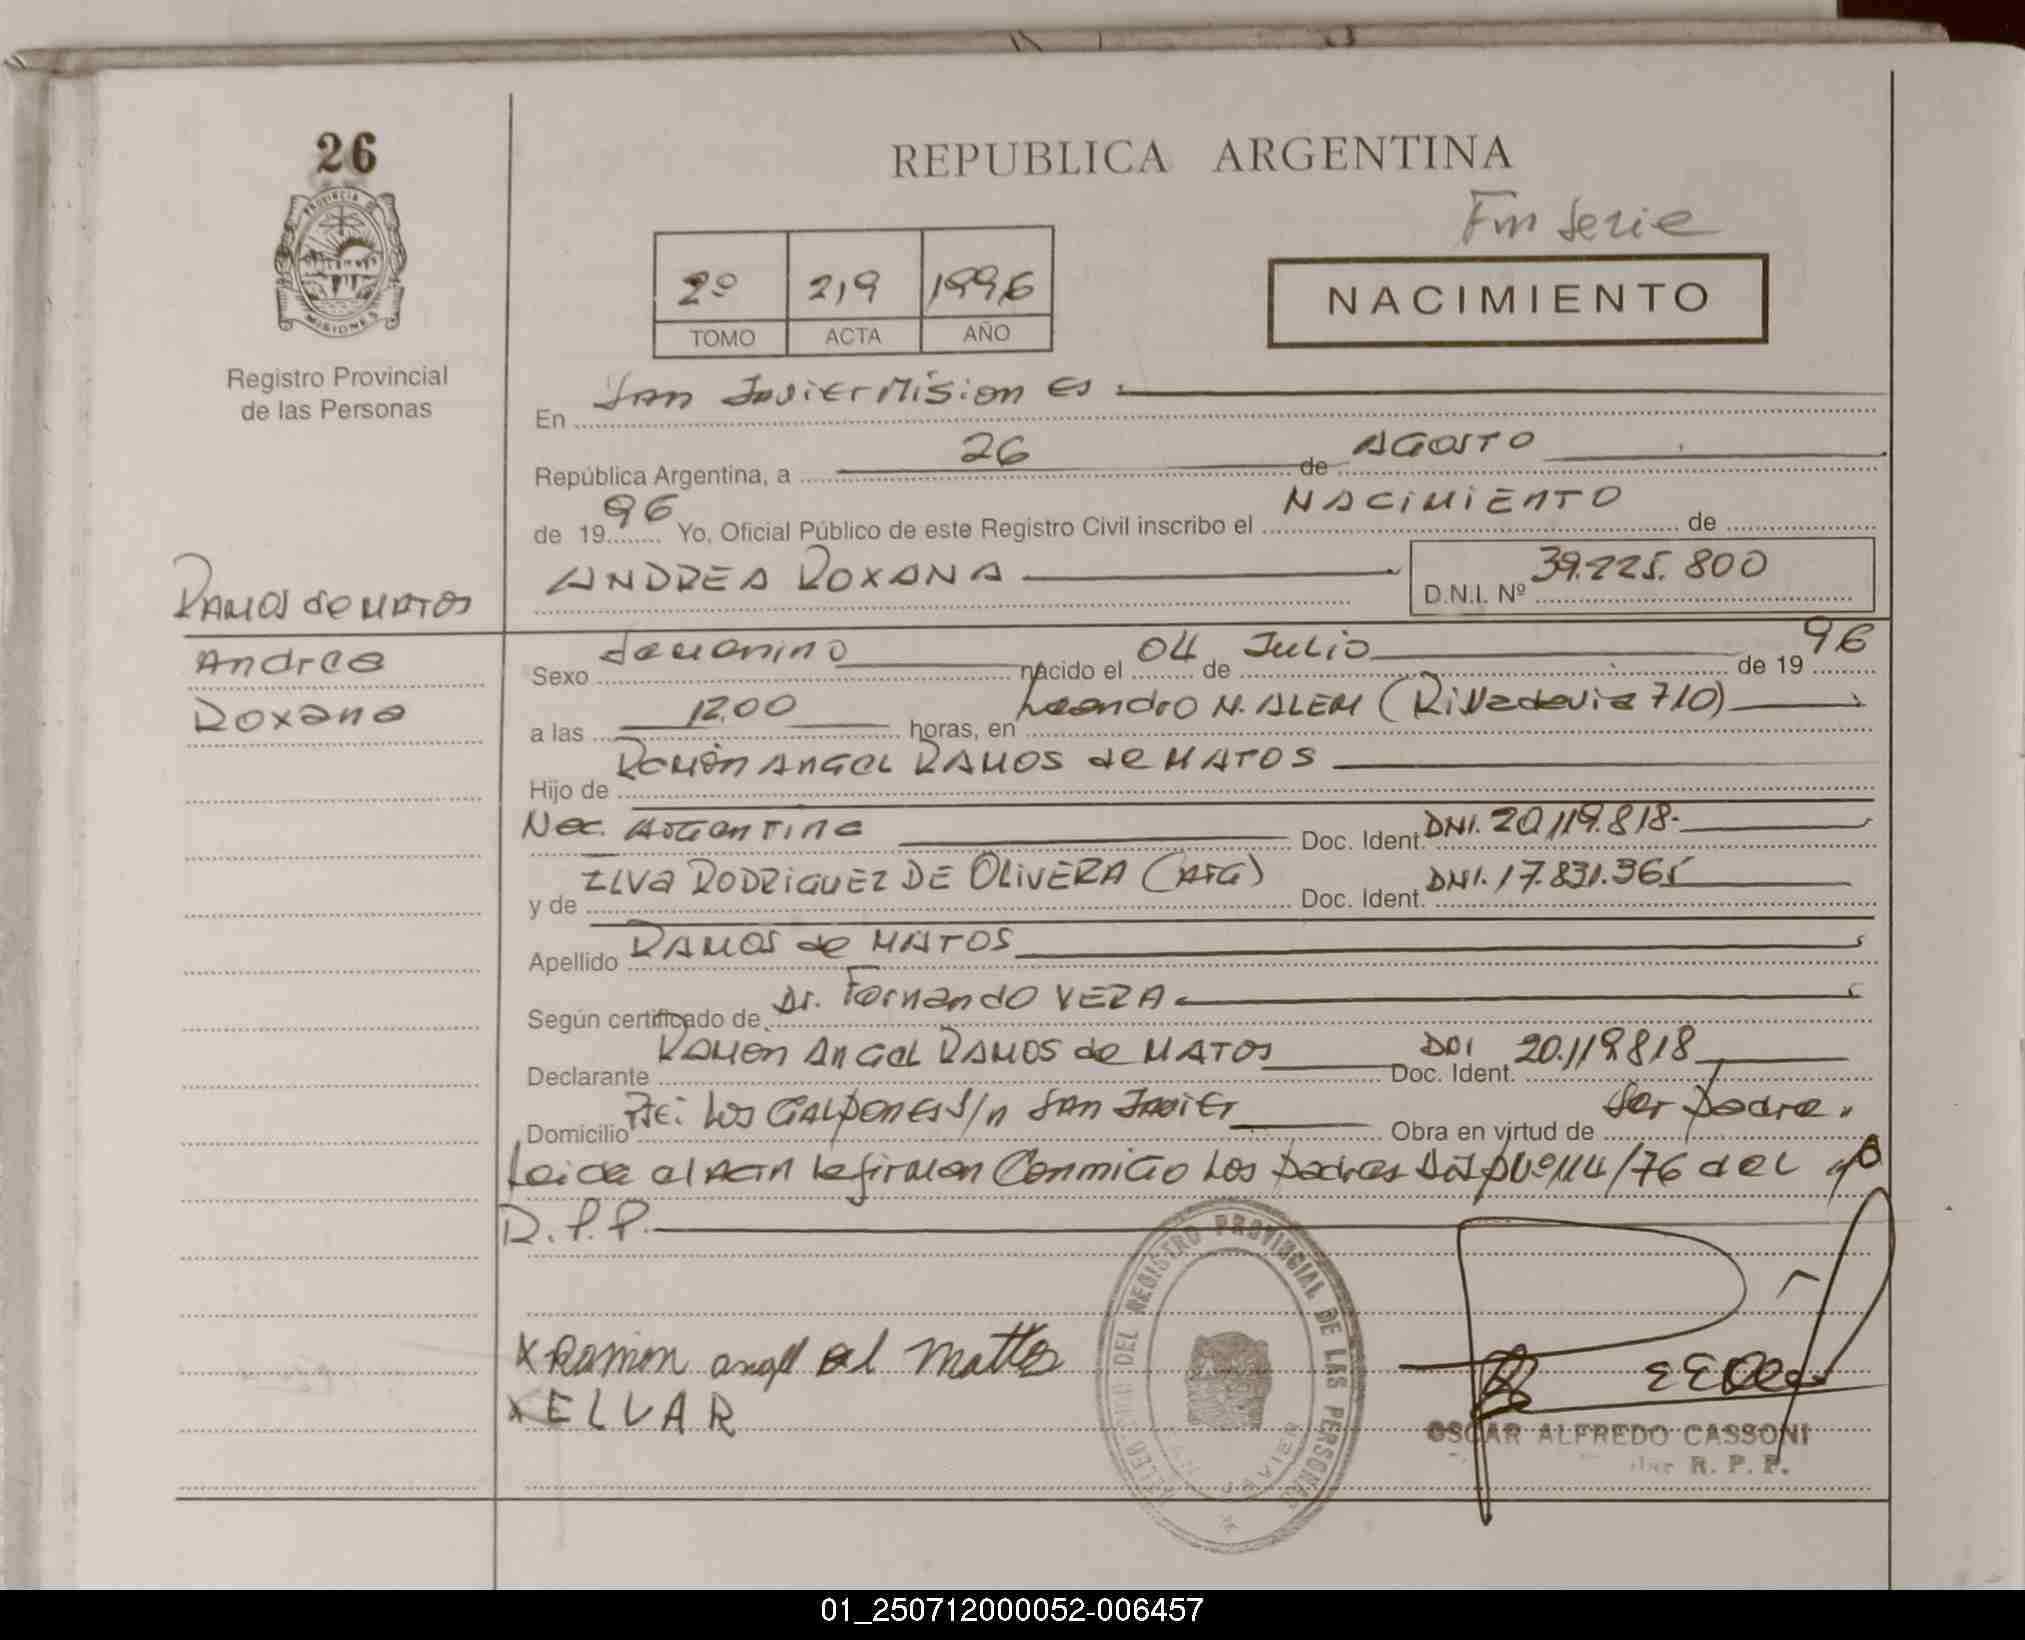 26
REPUBLICA ARGENTINA
PROVINCIA DE
MISIONES
Registro Provincial
de las Personas
Serie
2º 219 1996
TOMO ACTA AÑO
NACIMIENTO
En San Javier Misiones
República Argentina, a 26 de AGOSTO
de 1996 Yo, Oficial Público de este Registro Civil inscribo el NACIMIENTO de
ANDREA ROXANA D.N.I. Nº 39.225.800
RAMOS de MATOS
Andrea
Roxana
Sexo femenino nacido el 04 de Julio de 1996
a las 12.00 horas, en Leandro N. ALEM (Rivadavia 710)
Hijo de Ramón ANGEL RAMOS de MATOS
Nac. Argentina Doc. Ident. DNI. 20.119.818.
y de ELVA RODRIGUEZ DE OLIVERA (ARG) Doc. Ident. DNI. 17.831.365
Apellido RAMOS de MATOS
Según certificado de Dr. Fernando VERA
Declarante RAMON ANGEL RAMOS de MATOS Doc. Ident. DNI 20.119818
Domicilio Pje: Los GALPONES S/n San Javier Obra en virtud de Ser padre.
Leida el Acta la firman Conmigo Los padres Nº 114/76 del
R.P.P.
X Ramon angel Mattos
X ELVAR
DELEG DEL REGISTRO PROVINCIAL DE LAS PERSONAS
SAN JAVIER
OSCAR ALFREDO CASSONI
R. P. P.
01_250712000052-006457